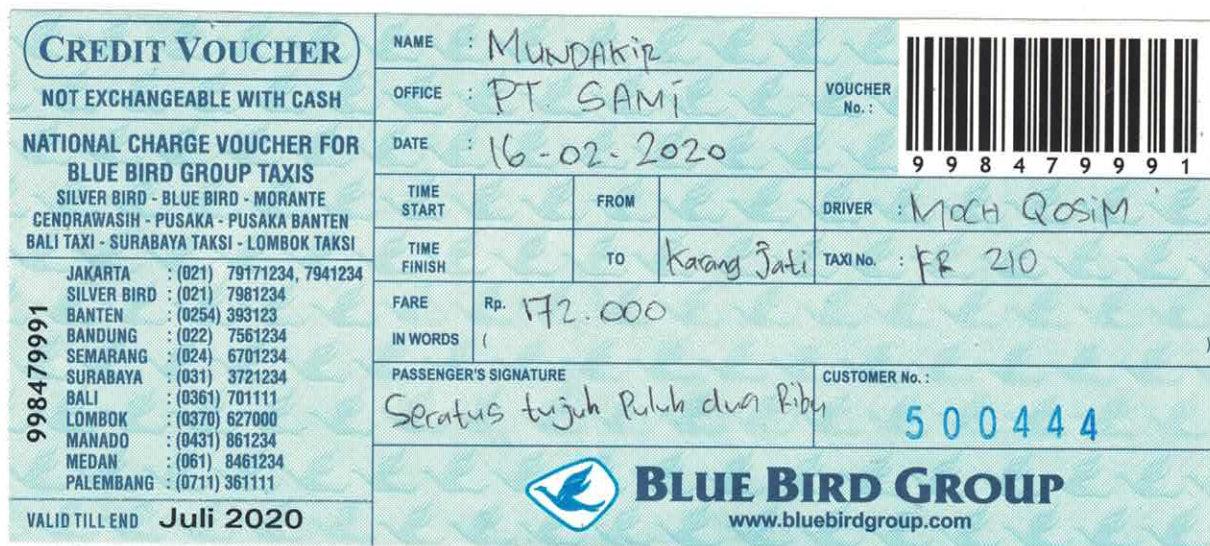 CREDIT VOUCHER
NOT EXCHANGEABLE WITH CASH
NATIONAL CHARGE VOUCHER FOR
BLUE BIRD GROUP TAXIS
SILVER BIRD - BLUE BIRD - MORANTE
CENDRAWASIH - PUSAKA - PUSAKA BANTEN
BALI TAXI - SURABAYA TAKSI - LOMBOK TAKSI
JAKARTA : (021) 79171234, 7941234
SILVER BIRD : (021) 7981234
BANTEN : (0254) 393123
BANDUNG : (022) 7561234
SEMARANG : (024) 6701234
SURABAYA : (031) 3721234
BALI : (0361) 701111
LOMBOK : (0370) 627000
MANADO : (0431) 861234
MEDAN : (061) 8461234
PALEMBANG : (0711) 361111
998479991
VALID TILL END Juli 2020
NAME : MUNDAKIR
OFFICE : PT. SAMI
DATE : 16-02-2020
VOUCHER No. :
998479991
TIME START
FROM
DRIVER : MOCH QOSIM
TIME FINISH
TO Karang Jati
TAXI No. : FR 210
FARE Rp. 172.000
IN WORDS ( )
PASSENGER'S SIGNATURE
Seratus tujuh Puluh dua Ribu
CUSTOMER No. :
500444
BLUE BIRD GROUP
www.bluebirdgroup.com